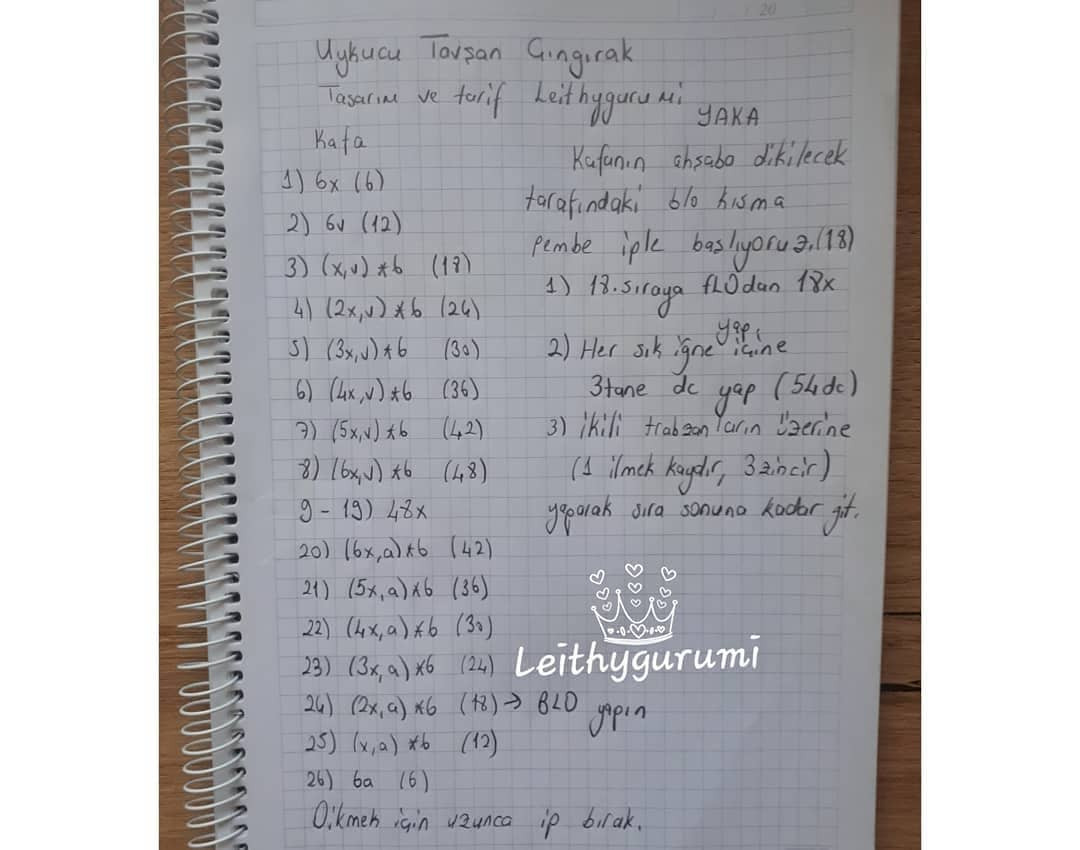 20
Uykucu Tavşan Çıngırak
Tasarım ve tarif Leithygurumi
Kafa
1) 6x (6)
2) 6v (12)
3) (x,v)*6 (18)
4) (2x,v)*6 (24)
5) (3x,v)*6 (30)
6) (4x,v)*6 (36)
7) (5x,v)*6 (42)
8) (6x,v)*6 (48)
9-19) 48x
20) (6x,a)*6 (42)
21) (5x,a)*6 (36)
22) (4x,a)*6 (30)
23) (3x,a)*6 (24)
24) (2x,a)*6 (18) → BLO yapın
25) (x,a)*6 (12)
26) 6a (6)
Dikmek için uzunca ip bırak.
YAKA
Kafanın ahşaba dikilecek
tarafındaki blo kısma
pembe iple başlıyoruz.(18)
1) 18.sıraya fLOdan 18x
yap.
2) Her sık iğne içine
3tane dc yap (54dc)
3) ikili trabzanların üzerine
(1 ilmek kaydır, 3 zincir)
yaparak sıra sonuna kadar git.
Leithygurumi